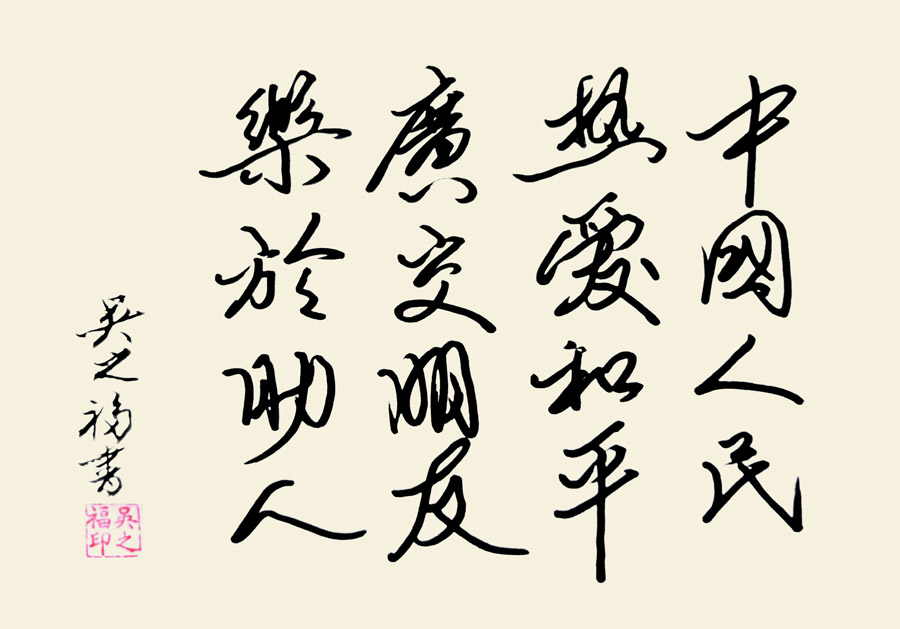 中國人民
热愛和平
廣交朋友
樂於助人
吴之福書
吴之
福印